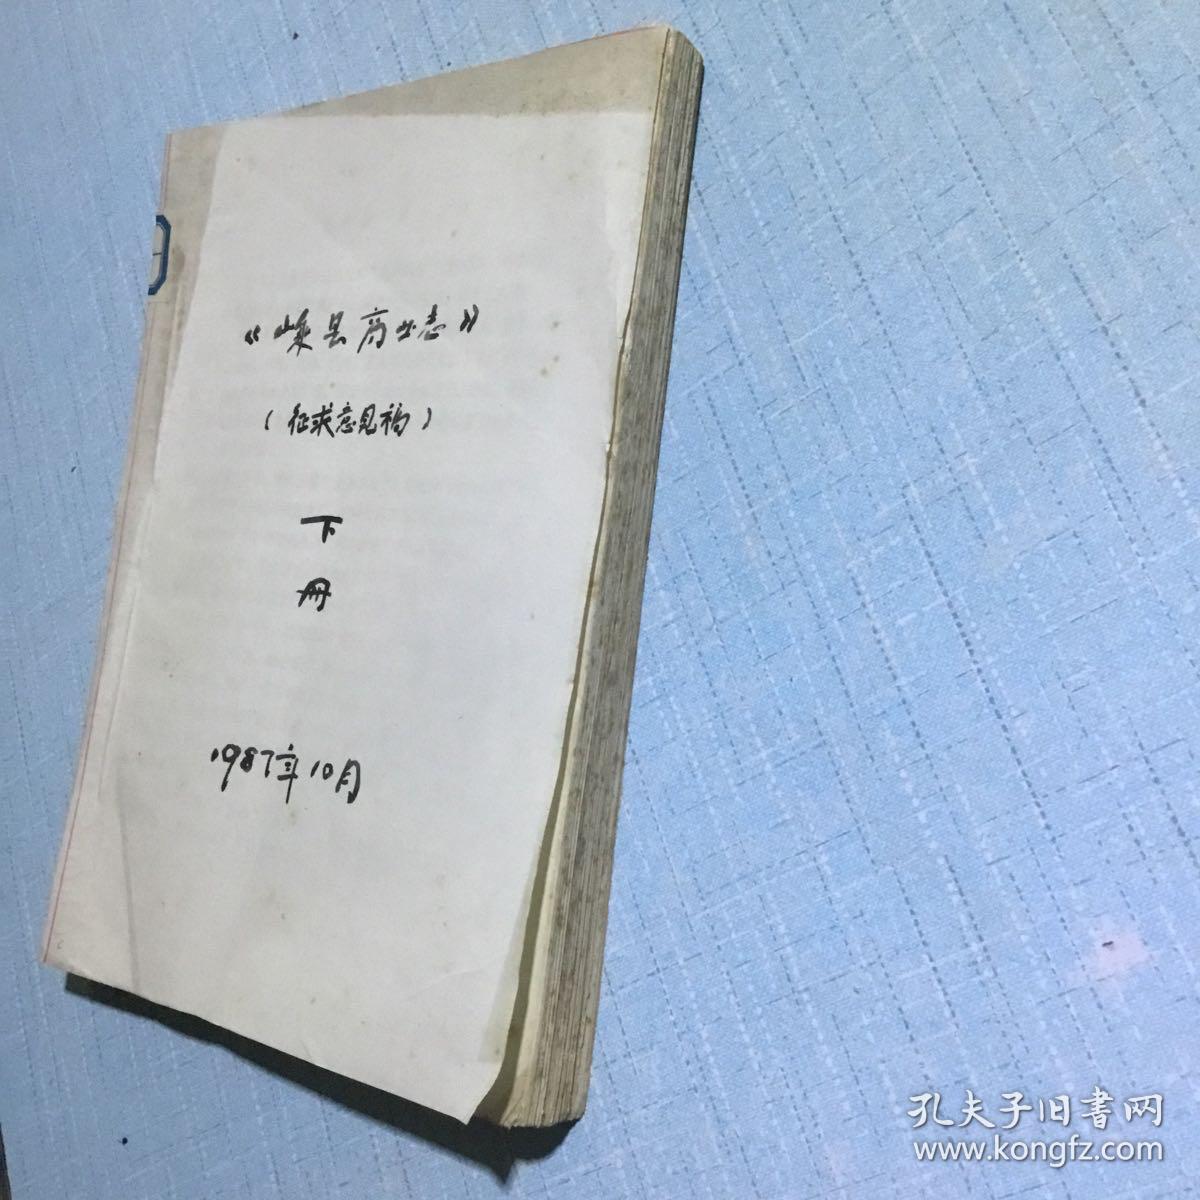 《嵊县商业志》
(征求意见稿)
下
册
1987年10月
孔夫子旧書网
www.kongfz.com